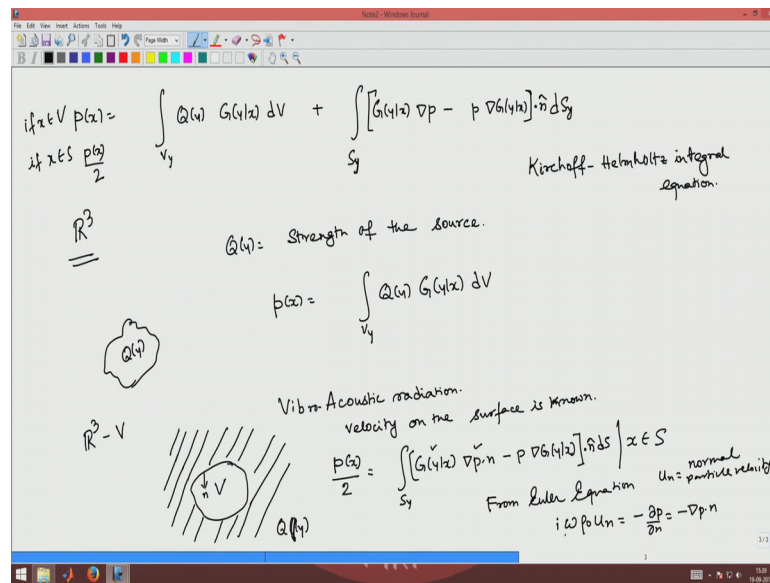 Note2 - Windows Journal
File Edit View Insert Actions Tools Help
Page Width
B I
if x ∈ V p(x) = ∫_{V_y} Q(y) G(y|x) dV + ∫_{S_y} [G(y|x) ∇p - p ∇G(y|x)]·n̂ dS_y
if x ∈ S p(x)/2
Kirchoff-Helmholtz integral
equation.
ℝ³
Q(y) = Strength of the source.
p(x) = ∫_{V_y} Q(y) G(y|x) dV
Q(y)
Vibro-Acoustic radiation.
velocity on the surface is known.
ℝ³ - V
n V
p(x)/2 = ∫_{S_y} [G(y|x) ∇p·n - p ∇G(y|x)]·n̂ dS | x ∈ S
From Euler Equation
Un = normal
particle velocity
iωρ₀Un = -∂p/∂n = -∇p·n
3/3
1
15:39